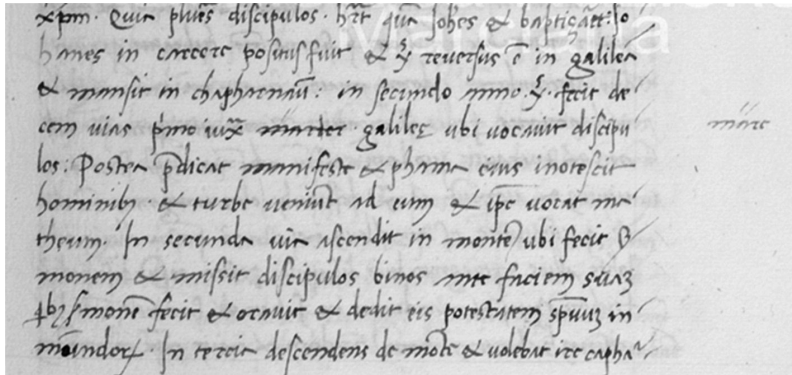 xpm. Quia plures discipulos. hr̄et quā Johēs & baptiçaret: Jo
hanes in carcere positus fuit & x̄p reversus ē in galilea
& mansit in chapharnaū: in secundo anno. x̄p. fecit de
cem vias p̄mo iuxta galileę ubi vocavit discipu
los: Postea p̄dicat manifeste & phama eius inotescit
hominibꝫ. & turbe veniūt ad eum & ip̄e vocat ma
theum. In secunda via ascendit in monte ubi fecit
monem & missit discipulos binos ante faciem suaꝫ
monē fecit & oravit & dedit eis potestatem sp̄uuꝫ in
mūndoꝝ. In tercia descendens de mōte & volebat ire capha
māre